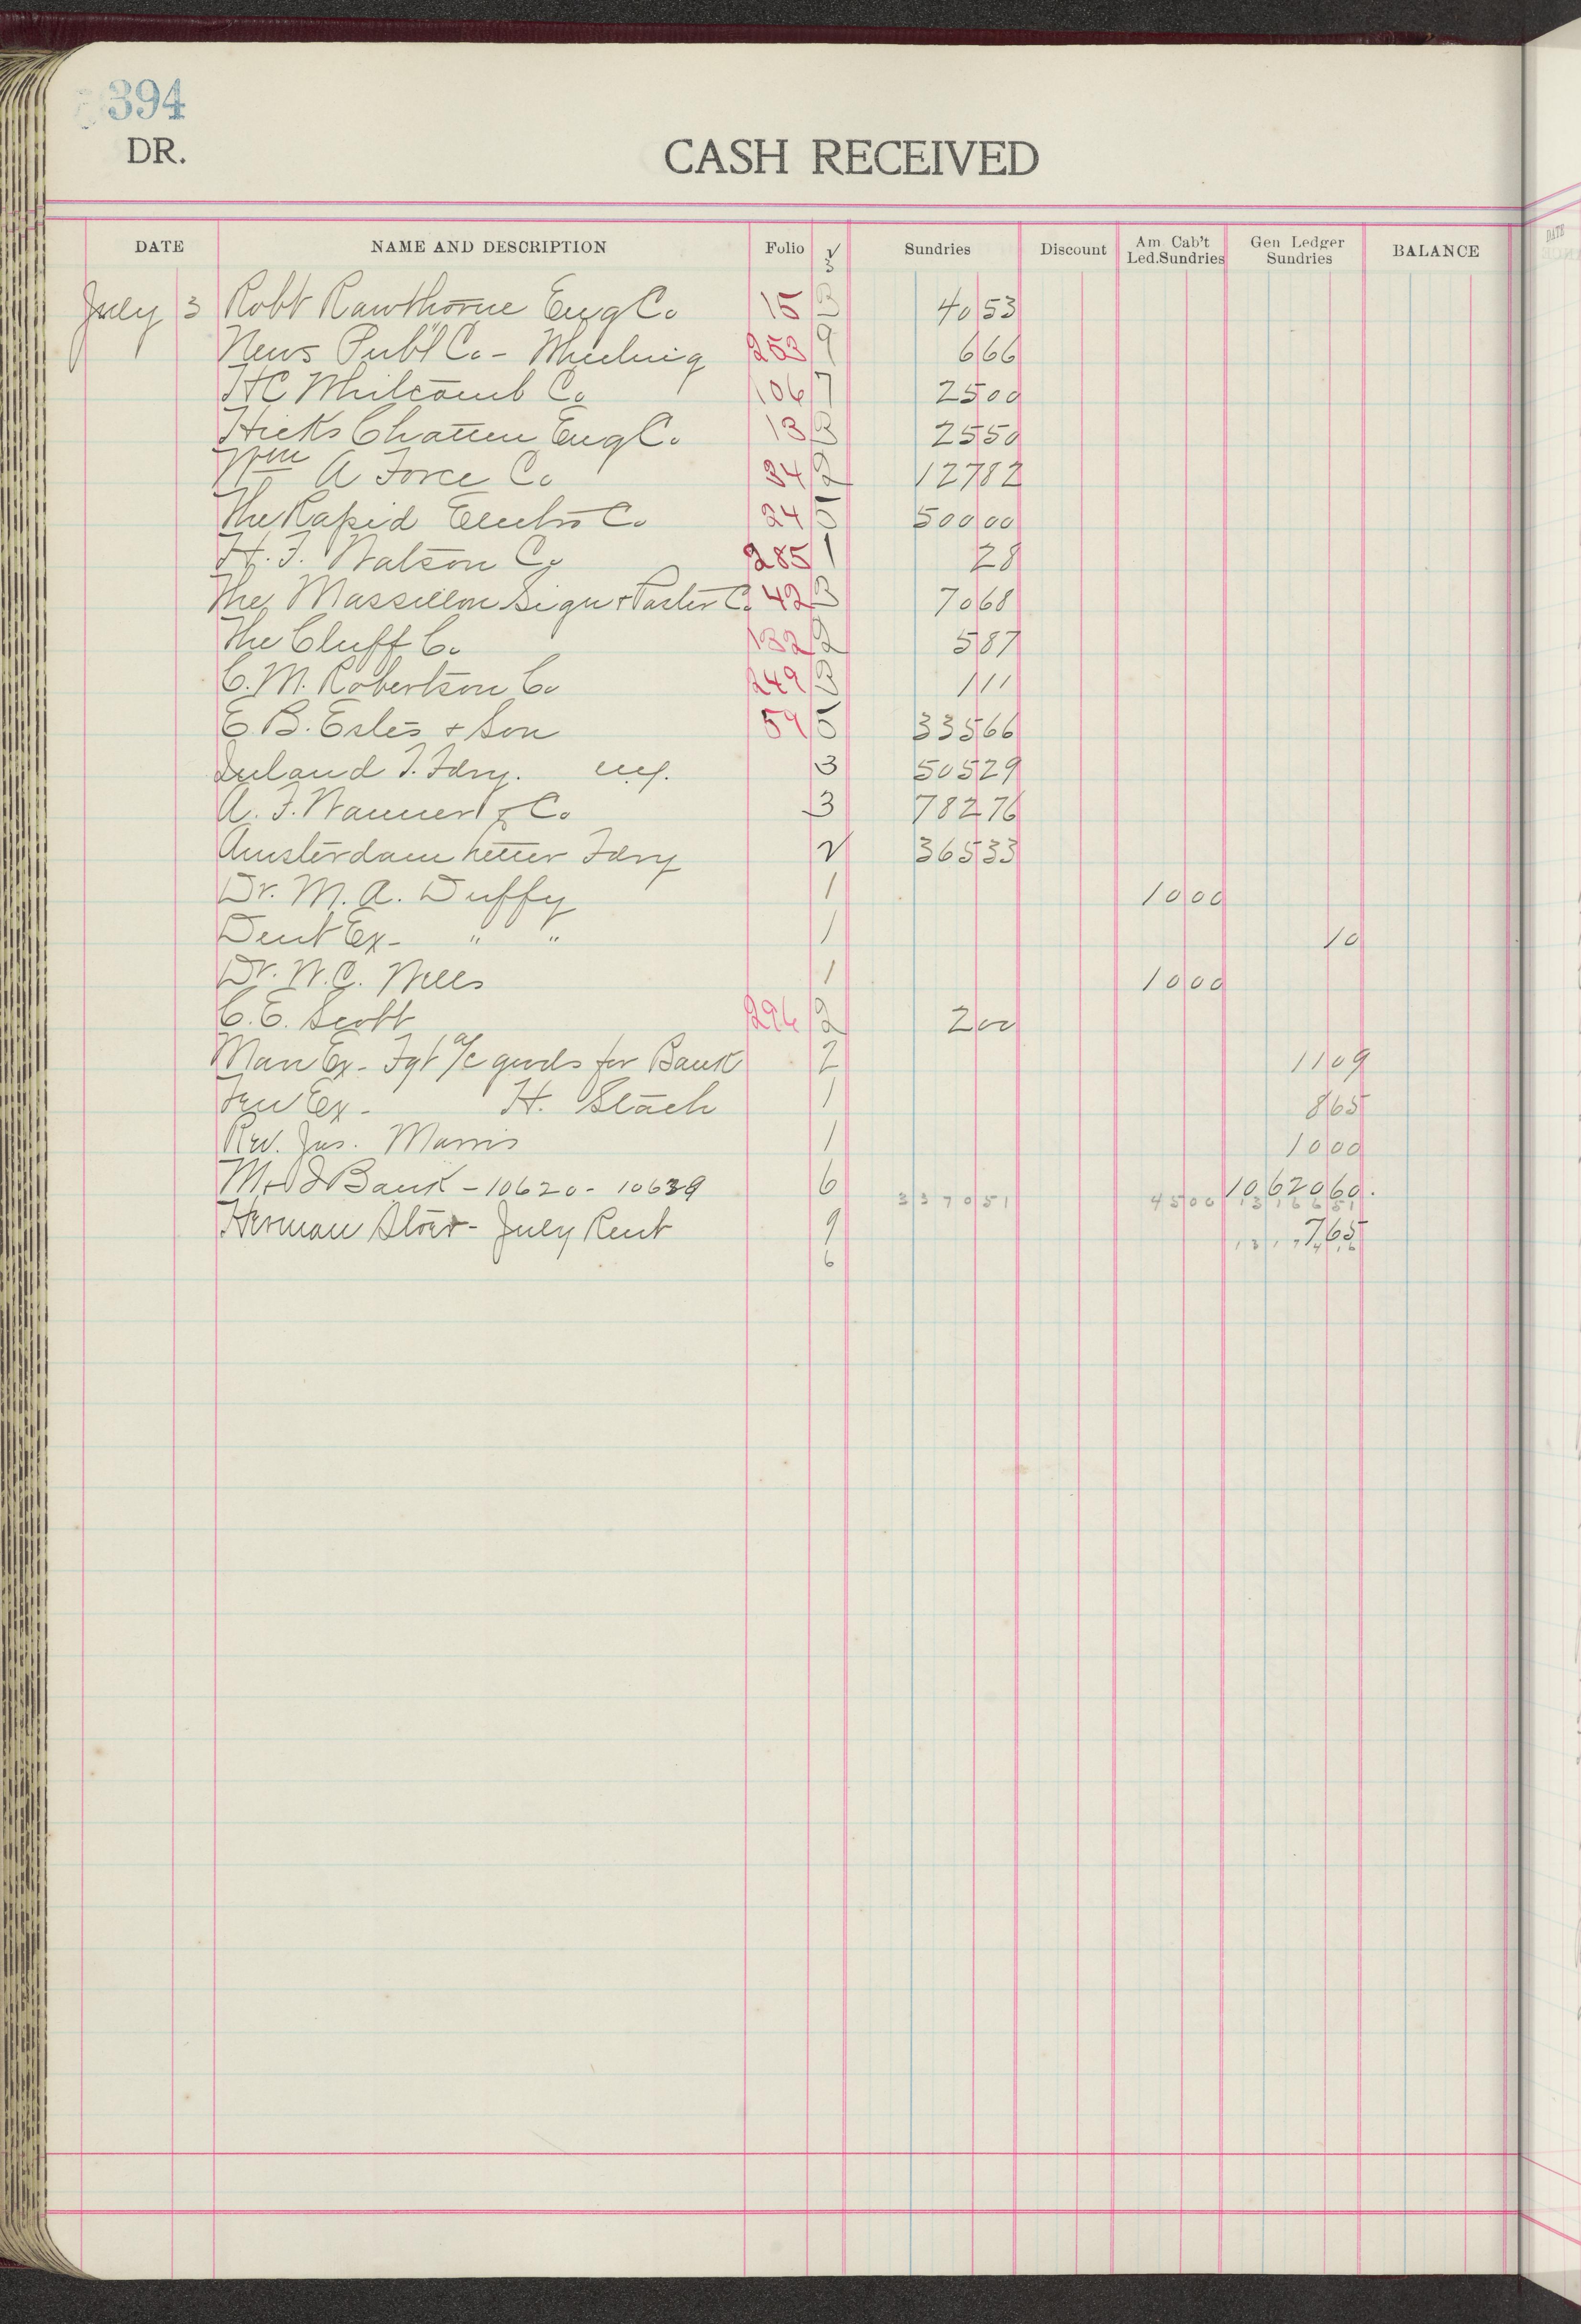 394
DR.
CASH RECEIVED
DATE NAME AND DESCRIPTION Folio √ Sundries Discount Am Cab't Led.Sundries Gen Ledger Sundries BALANCE
3
July 3 Robt Rawthorne Eng Co 15 3 40 53
News Publ Co - Wheeling 253 9 6 66
HC Whitcomb Co 106 7 25 00
Hicks Chatten Eng Co. 13 3 25 50
Wm A Force Co 34 2 127 82
The Rapid Electro Co 24 5 500 00
H. F. Watson Co 285 1 28
The Massillon Sign & Poster Co 42 3 70 68
The Cluff Co. 132 2 5 87
C. M. Robertson Co 249 3 1 11
E. B. Estes & Son 59 5 335 66
Inland T. Fdry. 3 505 29
A. F. Wanner & Co. 3 782 76
Amsterdam Letter Fdry √ 365 33
Dr. M. A. Duffy 1 10 00
Dent Ex - " " 1 10
Dr. W. C. 1 10 00
C. E. Scott 296 2 2 00
Man Ex - Fgt a/c goods for Bank 2 11 09
Ex - H. Stach 1 8 65
Rev. Jas. Marris 1 10 00
M & J Bank - 10620 - 10639 6 10620 60.
3370 51 45 00 13166 51
Herman Storr - July Rent 9 7 65
6